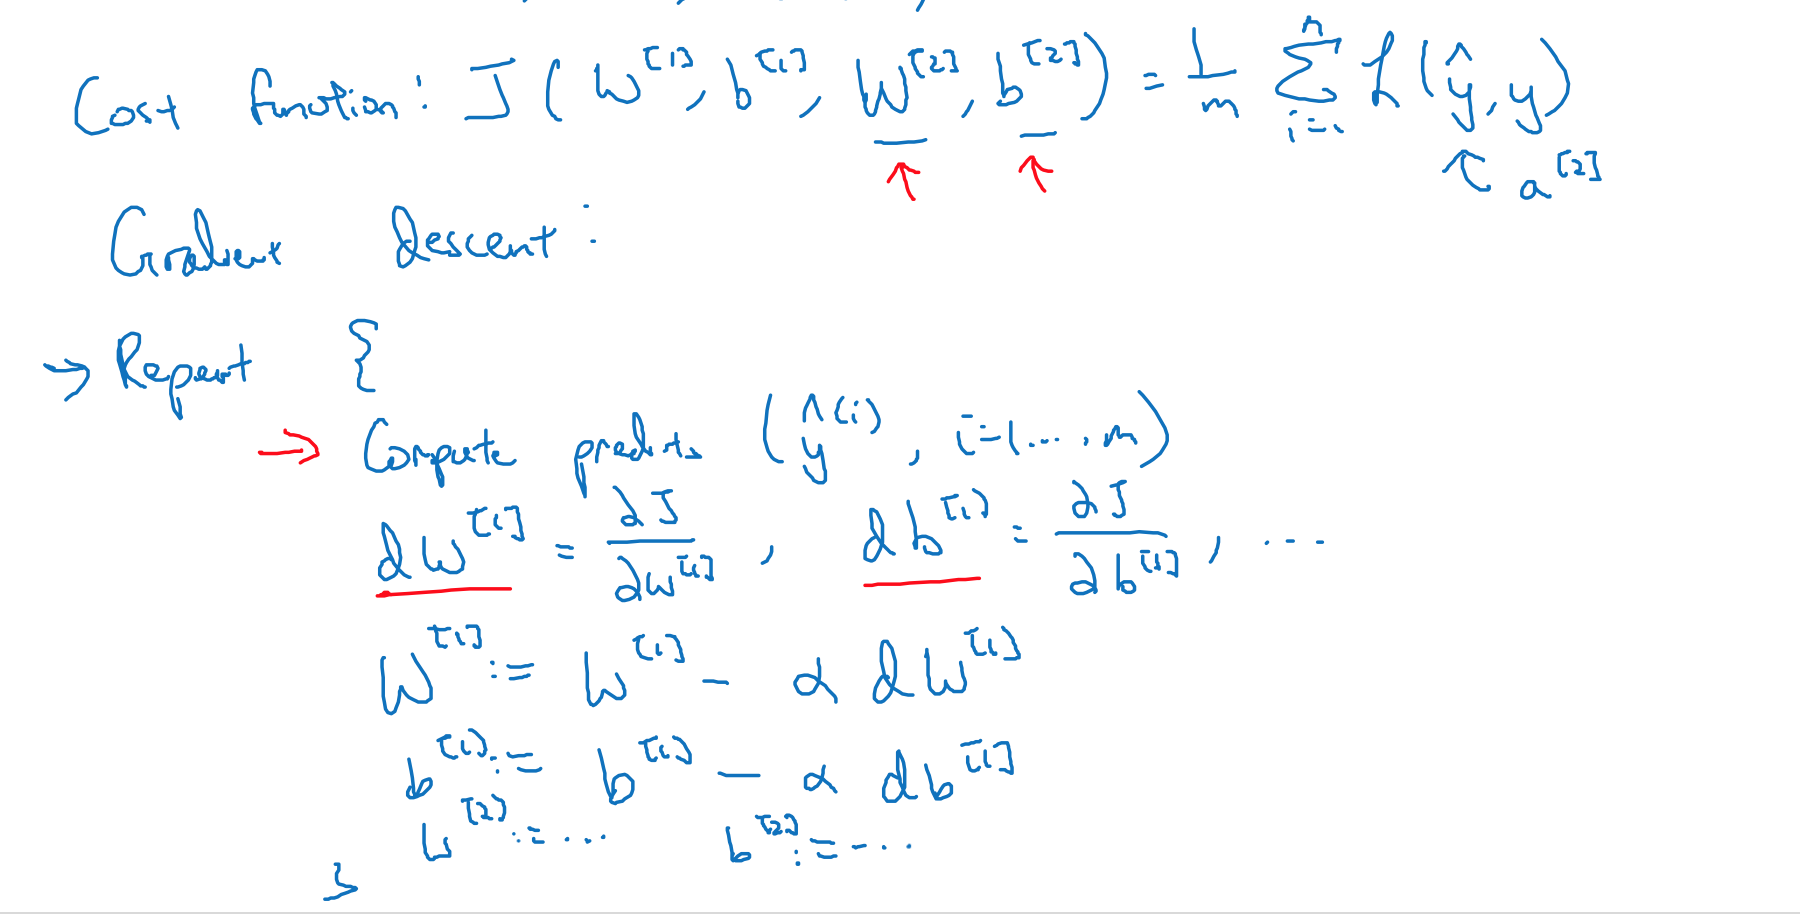 Cost function: J(W^[1], b^[1], W^[2], b^[2]) = 1/m ∑_{i=1}^{n} L(ŷ, y)
↑ ↑ ↖ a^[2]
Gradient descent:
→ Repeat {
→ Compute predicts (ŷ^(i), i=1..., m)
dW^[1] = ∂J/∂W^[1], db^[1] = ∂J/∂b^[1], ...
W^[1] := W^[1] - α dW^[1]
b^[1] := b^[1] - α db^[1]
W^[2] := ... b^[2] := ...
}